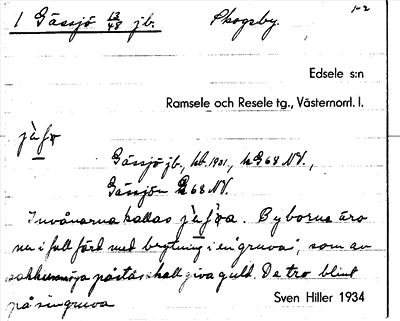 1 Gässjö 13/48 jb. Skogsby. 1-2
Edsele s:n
Ramsele och Resele tg., Västernorrl. l.
Gässjö jb., hb. 1931, kG68 NV.,
Gässjön G68 NV.
Invånarna kallas Byborna äro
nu i full färd med brytning i en "gruva", som av
påstås skall giva guld. De tro blint
på sin gruva
Sven Hiller 1934